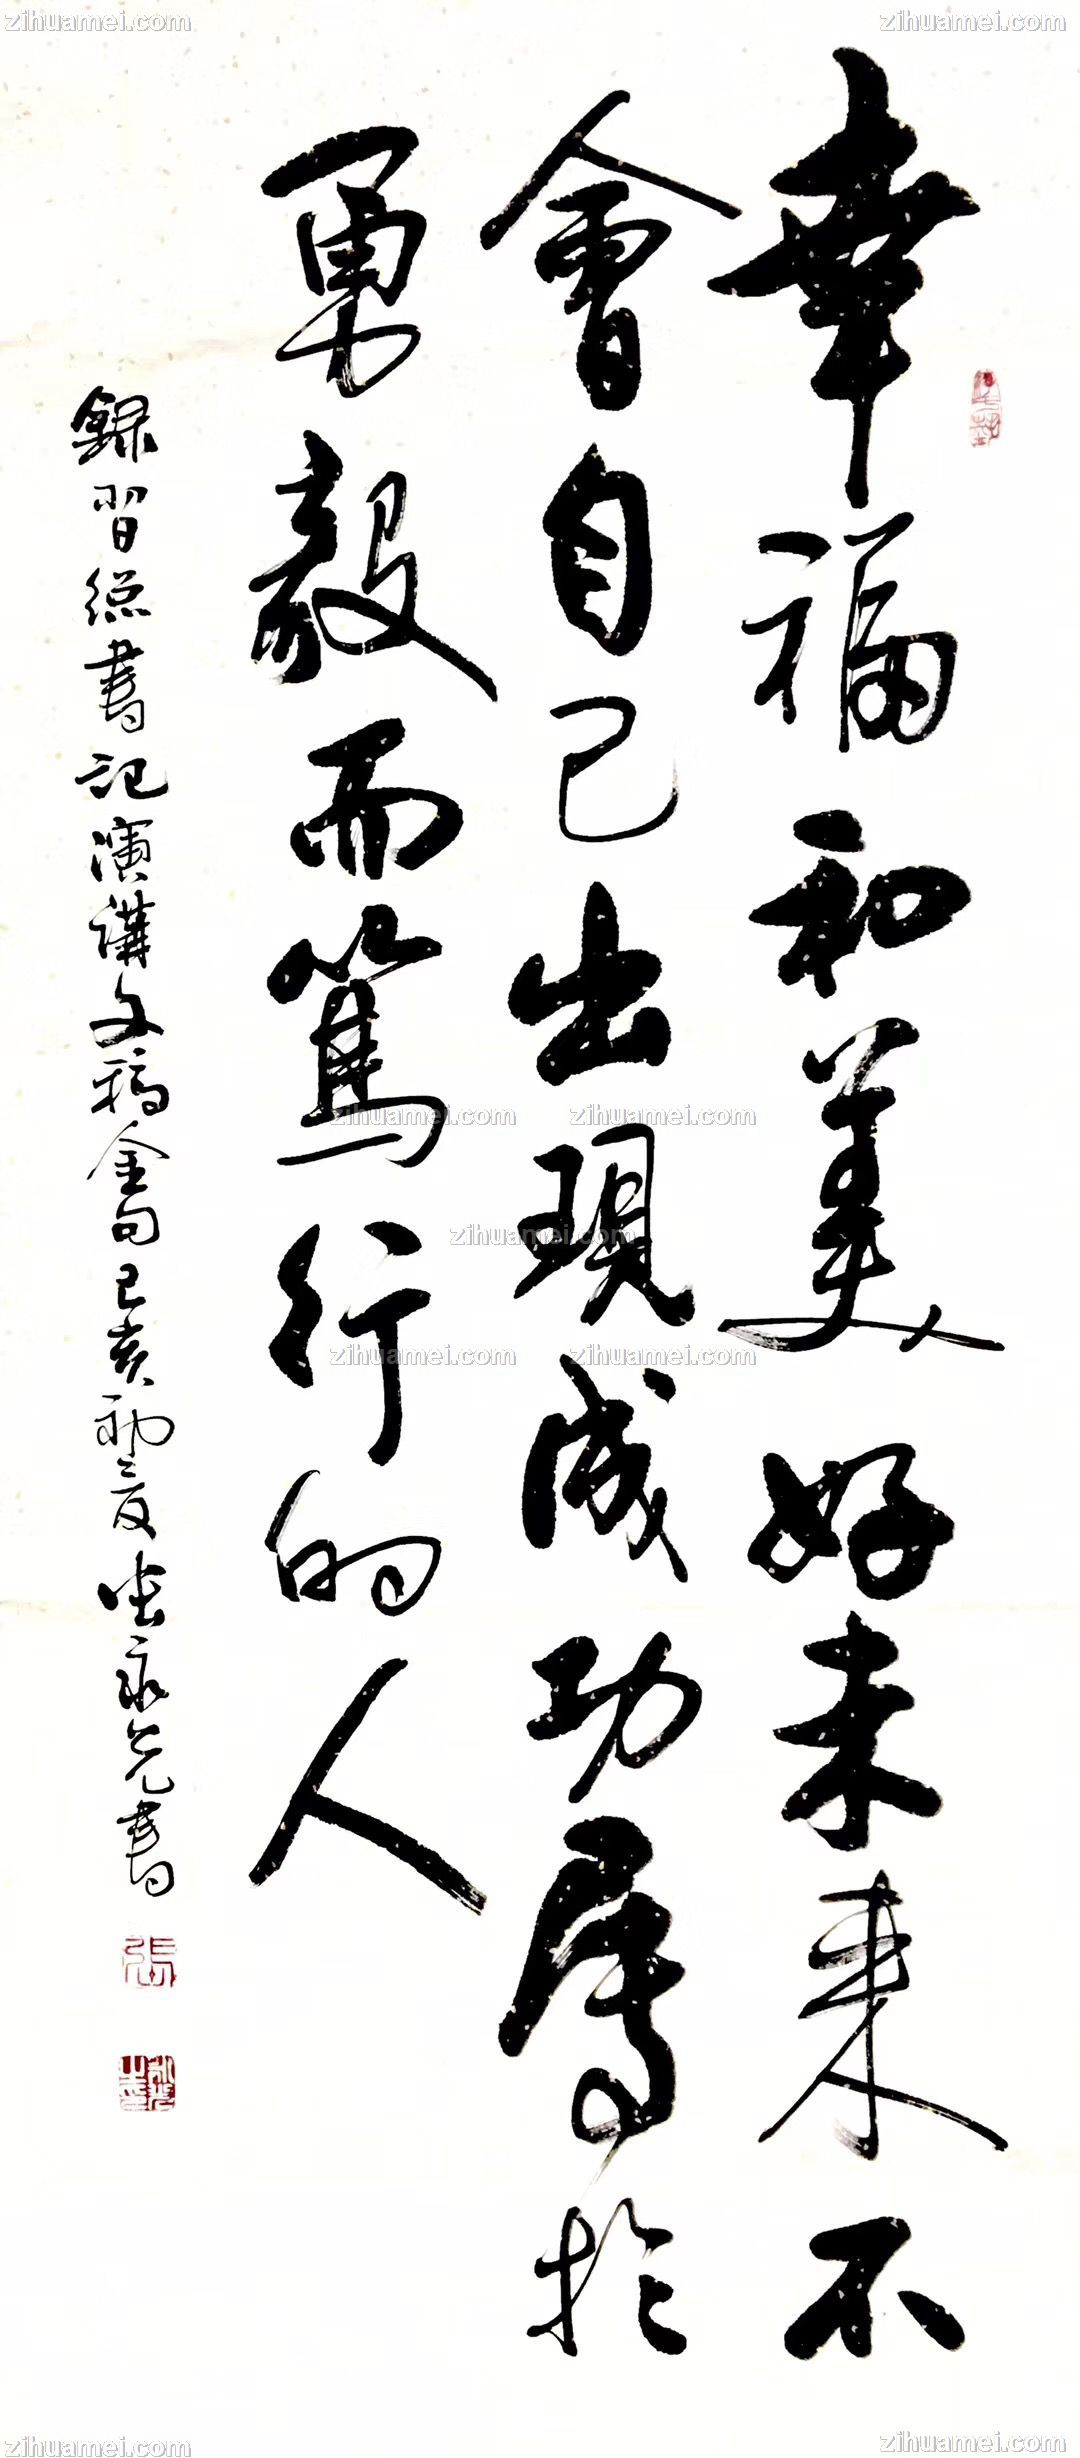 zihuamei.com zihuamei.com
幸福和美好未来不
會自己出現成功属於
勇毅而篤行的人
録習総書記演講文稿金句己亥初夏张永光書
張
zihuamei.com zihuamei.com
zihuamei.com
zihuamei.com zihuamei.com
zihuamei.com zihuamei.com